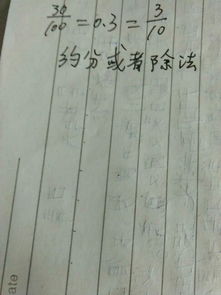 30/100 = 0.3 = 3/10
约分或者除法
ate